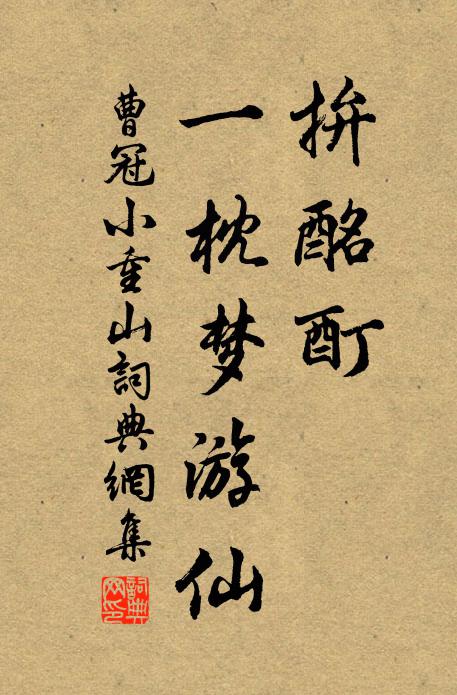 拚酩酊
一枕梦游仙
曹冠小重山詞典網集
詞典网印